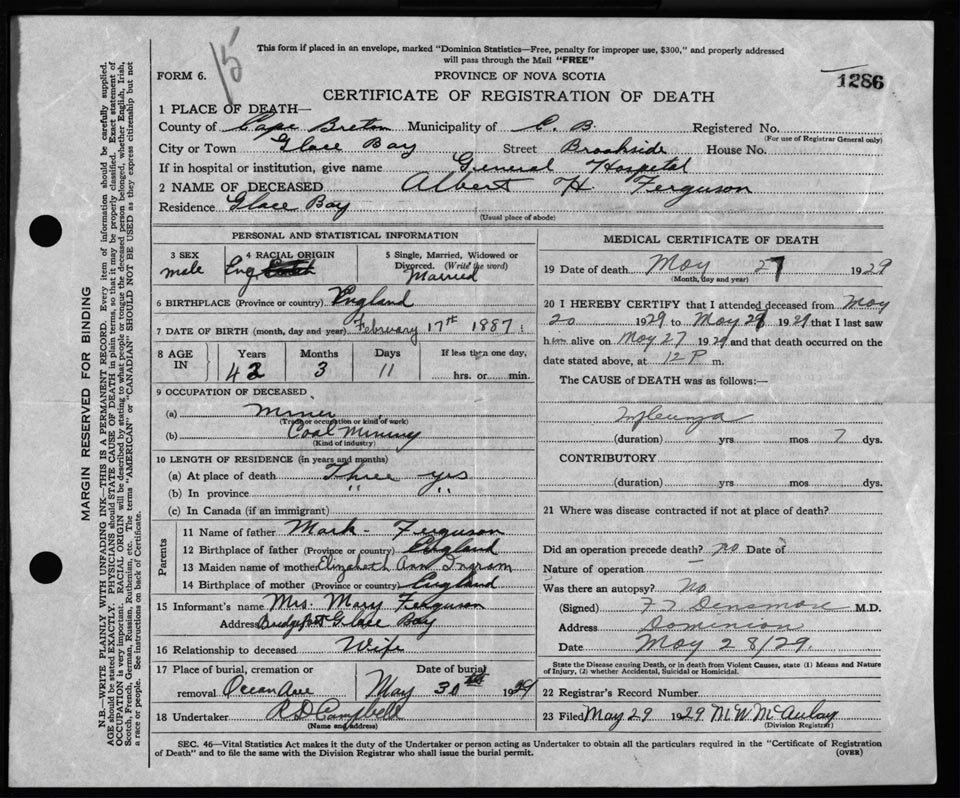 This form if placed in an envelope, marked "Dominion Statistics—Free, penalty for improper use, $300," and properly addressed
will pass through the Mail "FREE"
15
FORM 6.
PROVINCE OF NOVA SCOTIA
1286
CERTIFICATE OF REGISTRATION OF DEATH
1 PLACE OF DEATH—
County of Cape Breton Municipality of C. B. Registered No.
(For use of Registrar General only)
City or Town Glace Bay Street Brookside House No.
If in hospital or institution, give name General Hospital
2 NAME OF DECEASED Albert H. Ferguson
Residence Glace Bay
(Usual place of abode)
PERSONAL AND STATISTICAL INFORMATION
3 SEX male
4 RACIAL ORIGIN Eng
5 Single, Married, Widowed or Divorced. (Write the word) Married
6 BIRTHPLACE (Province or country) England
7 DATE OF BIRTH (month, day and year) February 17th 1887
8 AGE IN Years 42 Months 3 Days 11 If less then one day, hrs. or min.
9 OCCUPATION OF DECEASED
(a) Miner
(Trade or occupation or kind of work)
(b) Coal Mining
(Kind of industry)
10 LENGTH OF RESIDENCE (in years and months)
(a) At place of death Three yrs
(b) In province " "
(c) In Canada (if an immigrant)
Parents
11 Name of father Mark Ferguson
12 Birthplace of father (Province or country) England
13 Maiden name of mother Elizabeth Ann Ingram
14 Birthplace of mother (Province or country) England
15 Informant's name Mrs. Mary Ferguson
Address Bridgeport Glace Bay
16 Relationship to deceased Wife
17 Place of burial, cremation or removal Ocean Ave Date of burial May 30th 1929
18 Undertaker R D Campbell
(Name and address)
MEDICAL CERTIFICATE OF DEATH
19 Date of death May 27 1929
(Month, day and year)
20 I HEREBY CERTIFY that I attended deceased from May
20 1929 to May 28 1929 that I last saw
h alive on May 27 1929 and that death occurred on the
date stated above, at 12 P m.
The CAUSE of DEATH was as follows:—
Influenza
(duration) yrs mos 7 dys.
CONTRIBUTORY
(duration) yrs mos dys.
21 Where was disease contracted if not at place of death?
Did an operation precede death? no Date of
Nature of operation
Was there an autopsy? No
(Signed) F T Densmore M.D.
Address Dominion
Date May 28/29.
State the Disease causing Death, or in death from Violent Causes, state (1) Means and Nature
of Injury, (2) whether Accidental, Suicidal or Homicidal.
22 Registrar's Record Number
23 Filed May 29 1929 M W McAulay
(Division Registrar)
SEC. 46—Vital Statistics Act makes it the duty of the Undertaker or person acting as Undertaker to obtain all the particulars required in the "Certificate of Registration
of Death" and to file the same with the Division Registrar who shall issue the burial permit.
(OVER)
MARGIN RESERVED FOR BINDING
N.B.—WRITE PLAINLY WITH UNFADING INK—THIS IS A PERMANENT RECORD. Every item of information should be carefully supplied.
AGE should be stated EXACTLY. PHYSICIANS should STATE CAUSE OF DEATH in plain terms, so that it may be properly classified. Exact statement of
OCCUPATION is very important. RACIAL ORIGIN will be described by stating to what people or tongue the deceased person belonged, whether English, Irish,
Scotch, French, German, Russian, Ruthenian, etc. The terms "AMERICAN" or "CANADIAN" SHOULD NOT BE USED as they express citizenship but not
a race or people. See instructions on back of Certificate.